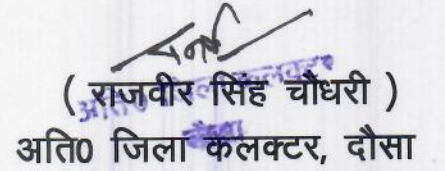 ( राजवीर सिंह चौधरी )
अति0 जिला कलक्टर, दौसा